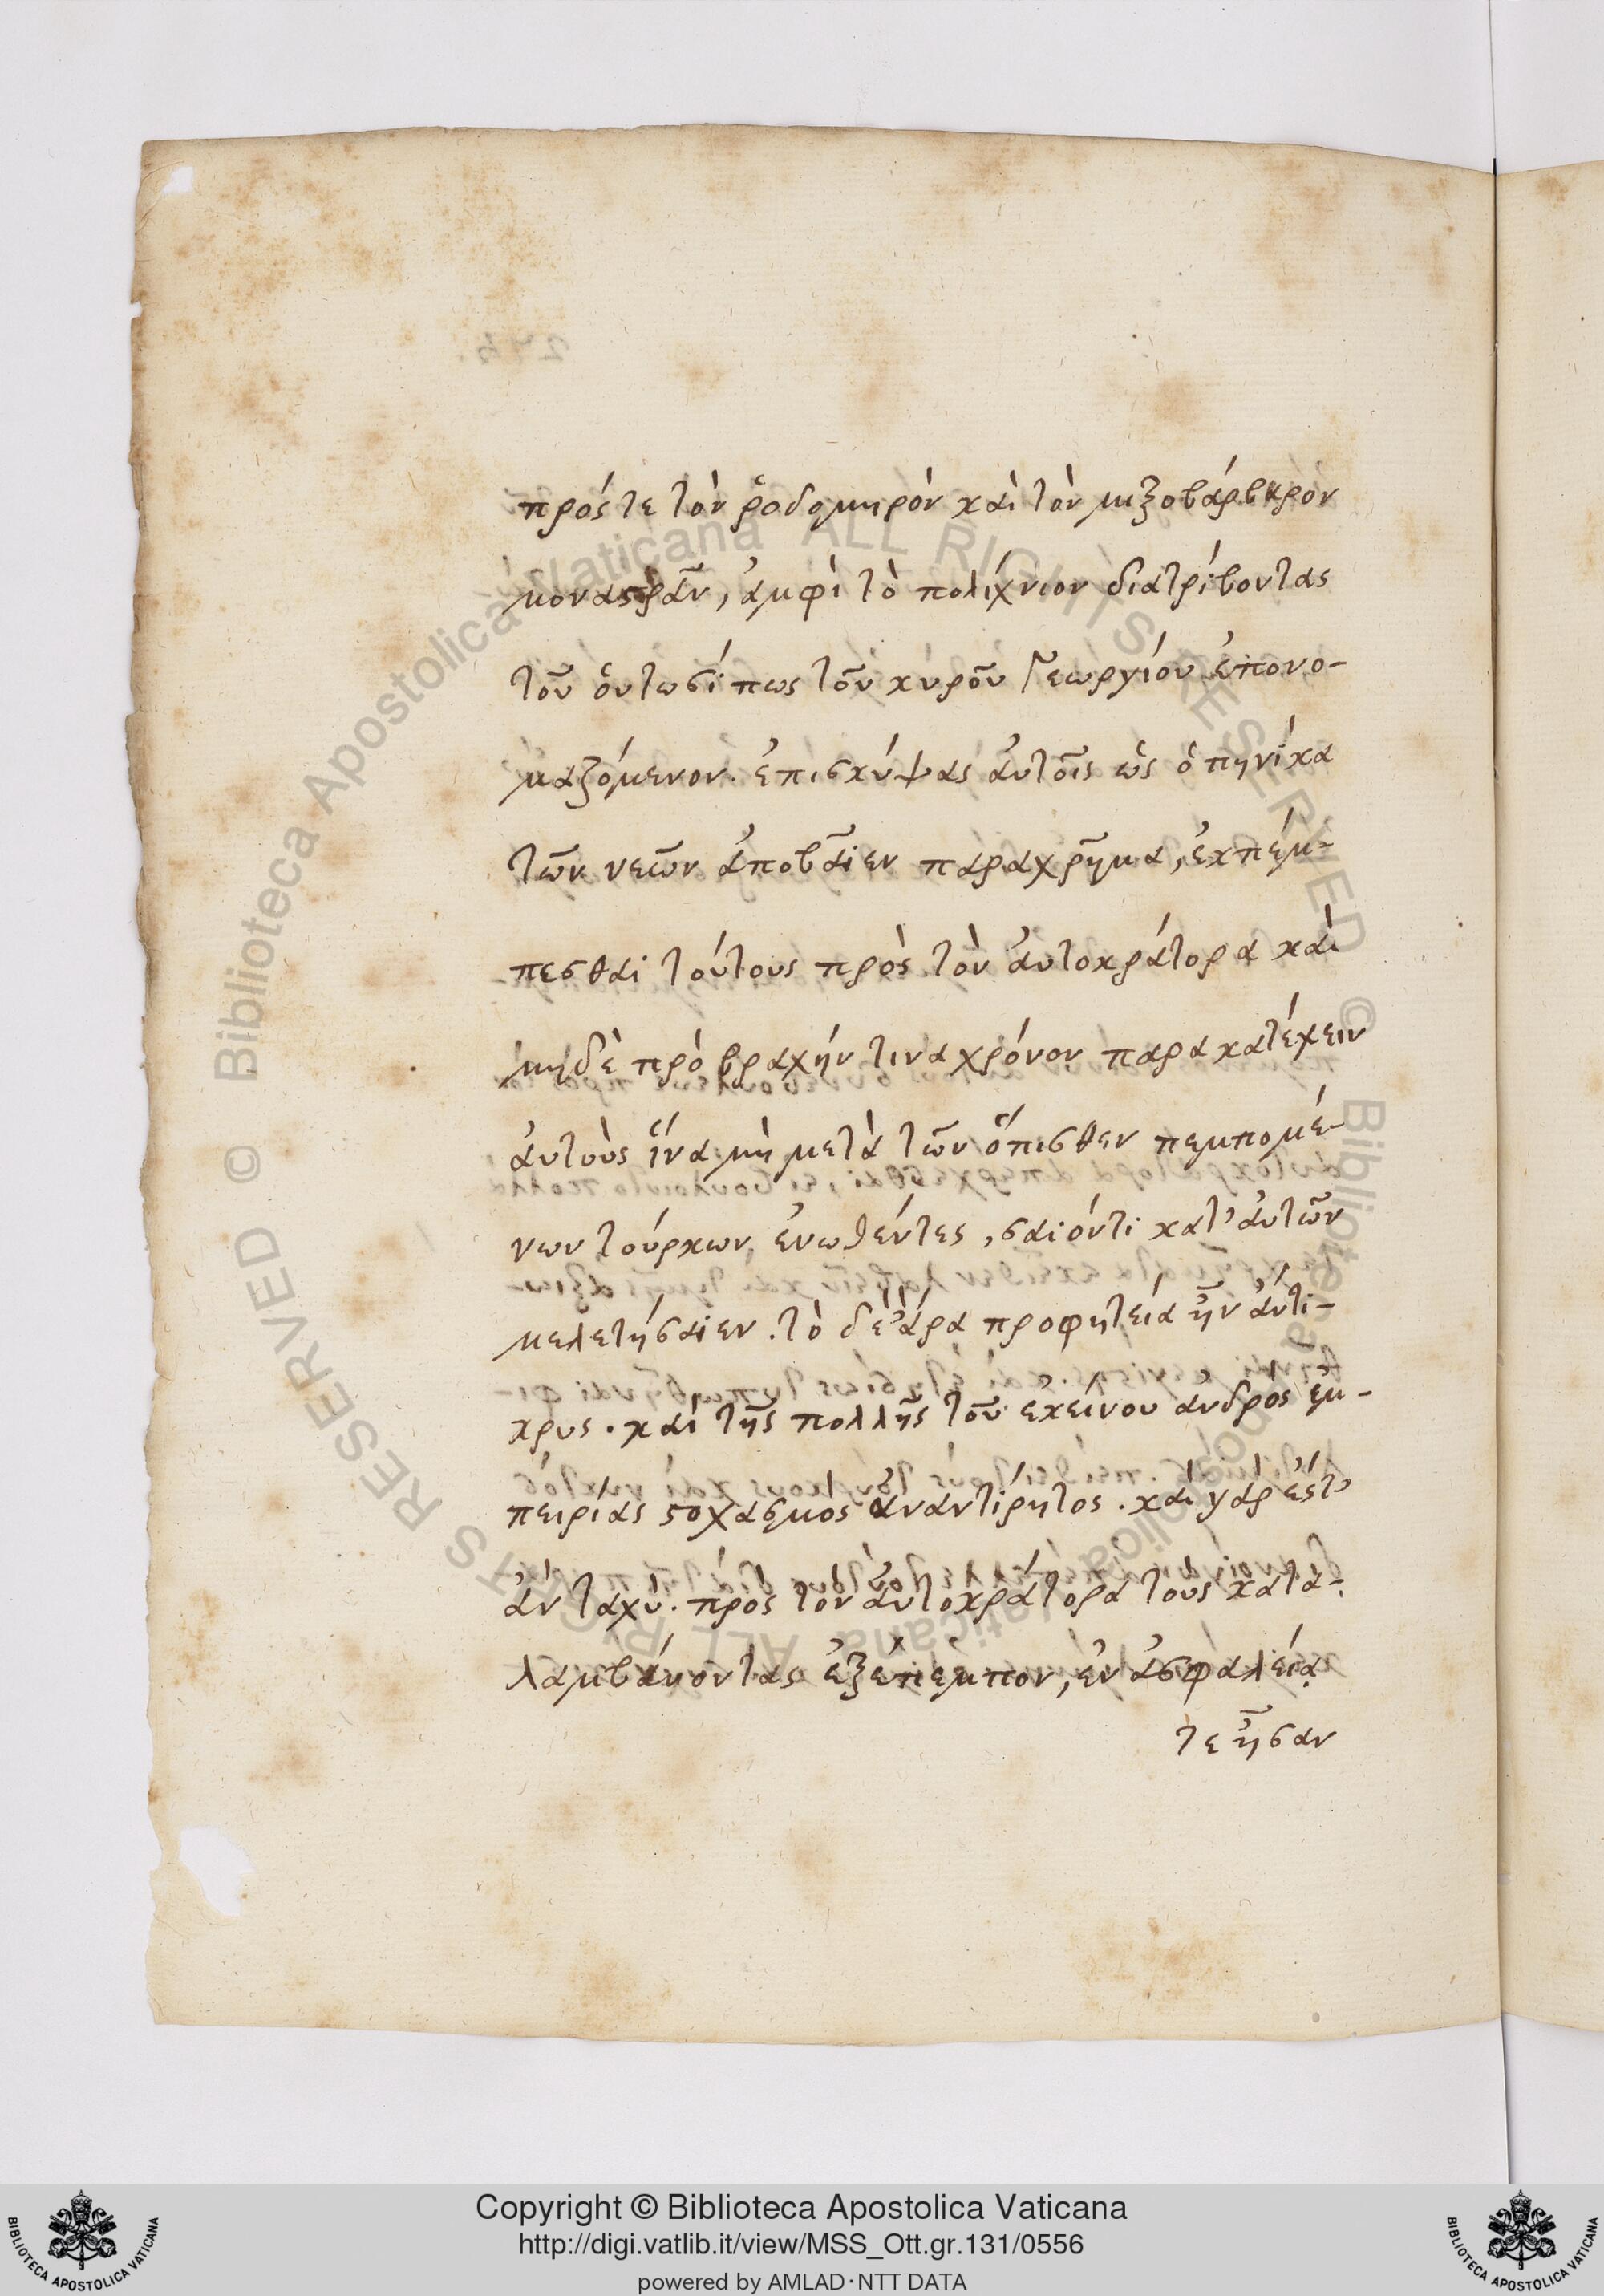 πρός τε τὸν ῥοδομηρὸν καὶ τὸν μιξοβάρβαρον
μοναςρᾶν, ἀμφὶ τὸ πολίχνιον διατρίβοντας
τοῦ ὁυτωσί πως τοῦ κυροῦ Γεωργίου ἐπονο-
μαζόμενον. ἐπισκύψας ἀυτοῖς ὡς ὁπηνίκα
τῶν νεῶν ἀποβᾶιεν παραχρῆμα, ἐκπέμ-
πεσθαι τούτους πρὸς τὸν ἀυτοκράτορα καὶ
μηδὲ πρὸ βραχήν τινα χρόνον παρακατέχειν
ἀυτοὺς ἵνα μὴ μετὰ τῶν ὄπισθεν πεμπομέ-
νων τούρκων ἑνωθέντες, σαιόντι κατ' ἀυτῶν
μελετήσαιεν. τὸ δε ἄρα προφητεία ἦν ἀντι-
κρυς. καὶ τῆς πολλῆς τοῦ ἐκείνου ἀνδρὸς ἐμ-
πειρίας ςοχασμος ἀναντίρητος. καὶ γὰρ ἔςτ'
ἀν ταχὺ. πρὸς τὸν ἀυτοκράτορα τους κατα-
λαμβάνοντας ἐξέπεμπον, ἐν ἀσφαλείᾳ
τε ἦσαν
Copyright © Biblioteca Apostolica Vaticana
http://digi.vatlib.it/view/MSS_Ott.gr.131/0556
powered by AMLAD·NTT DATA
BIBLIOTECA APOSTOLICA VATICANA
BIBLIOTECA APOSTOLICA VATICANA
© Biblioteca Apostolica Vaticana ALL RIGHTS RESERVED
© Biblioteca Apostolica Vaticana ALL RIGHTS RESERVED